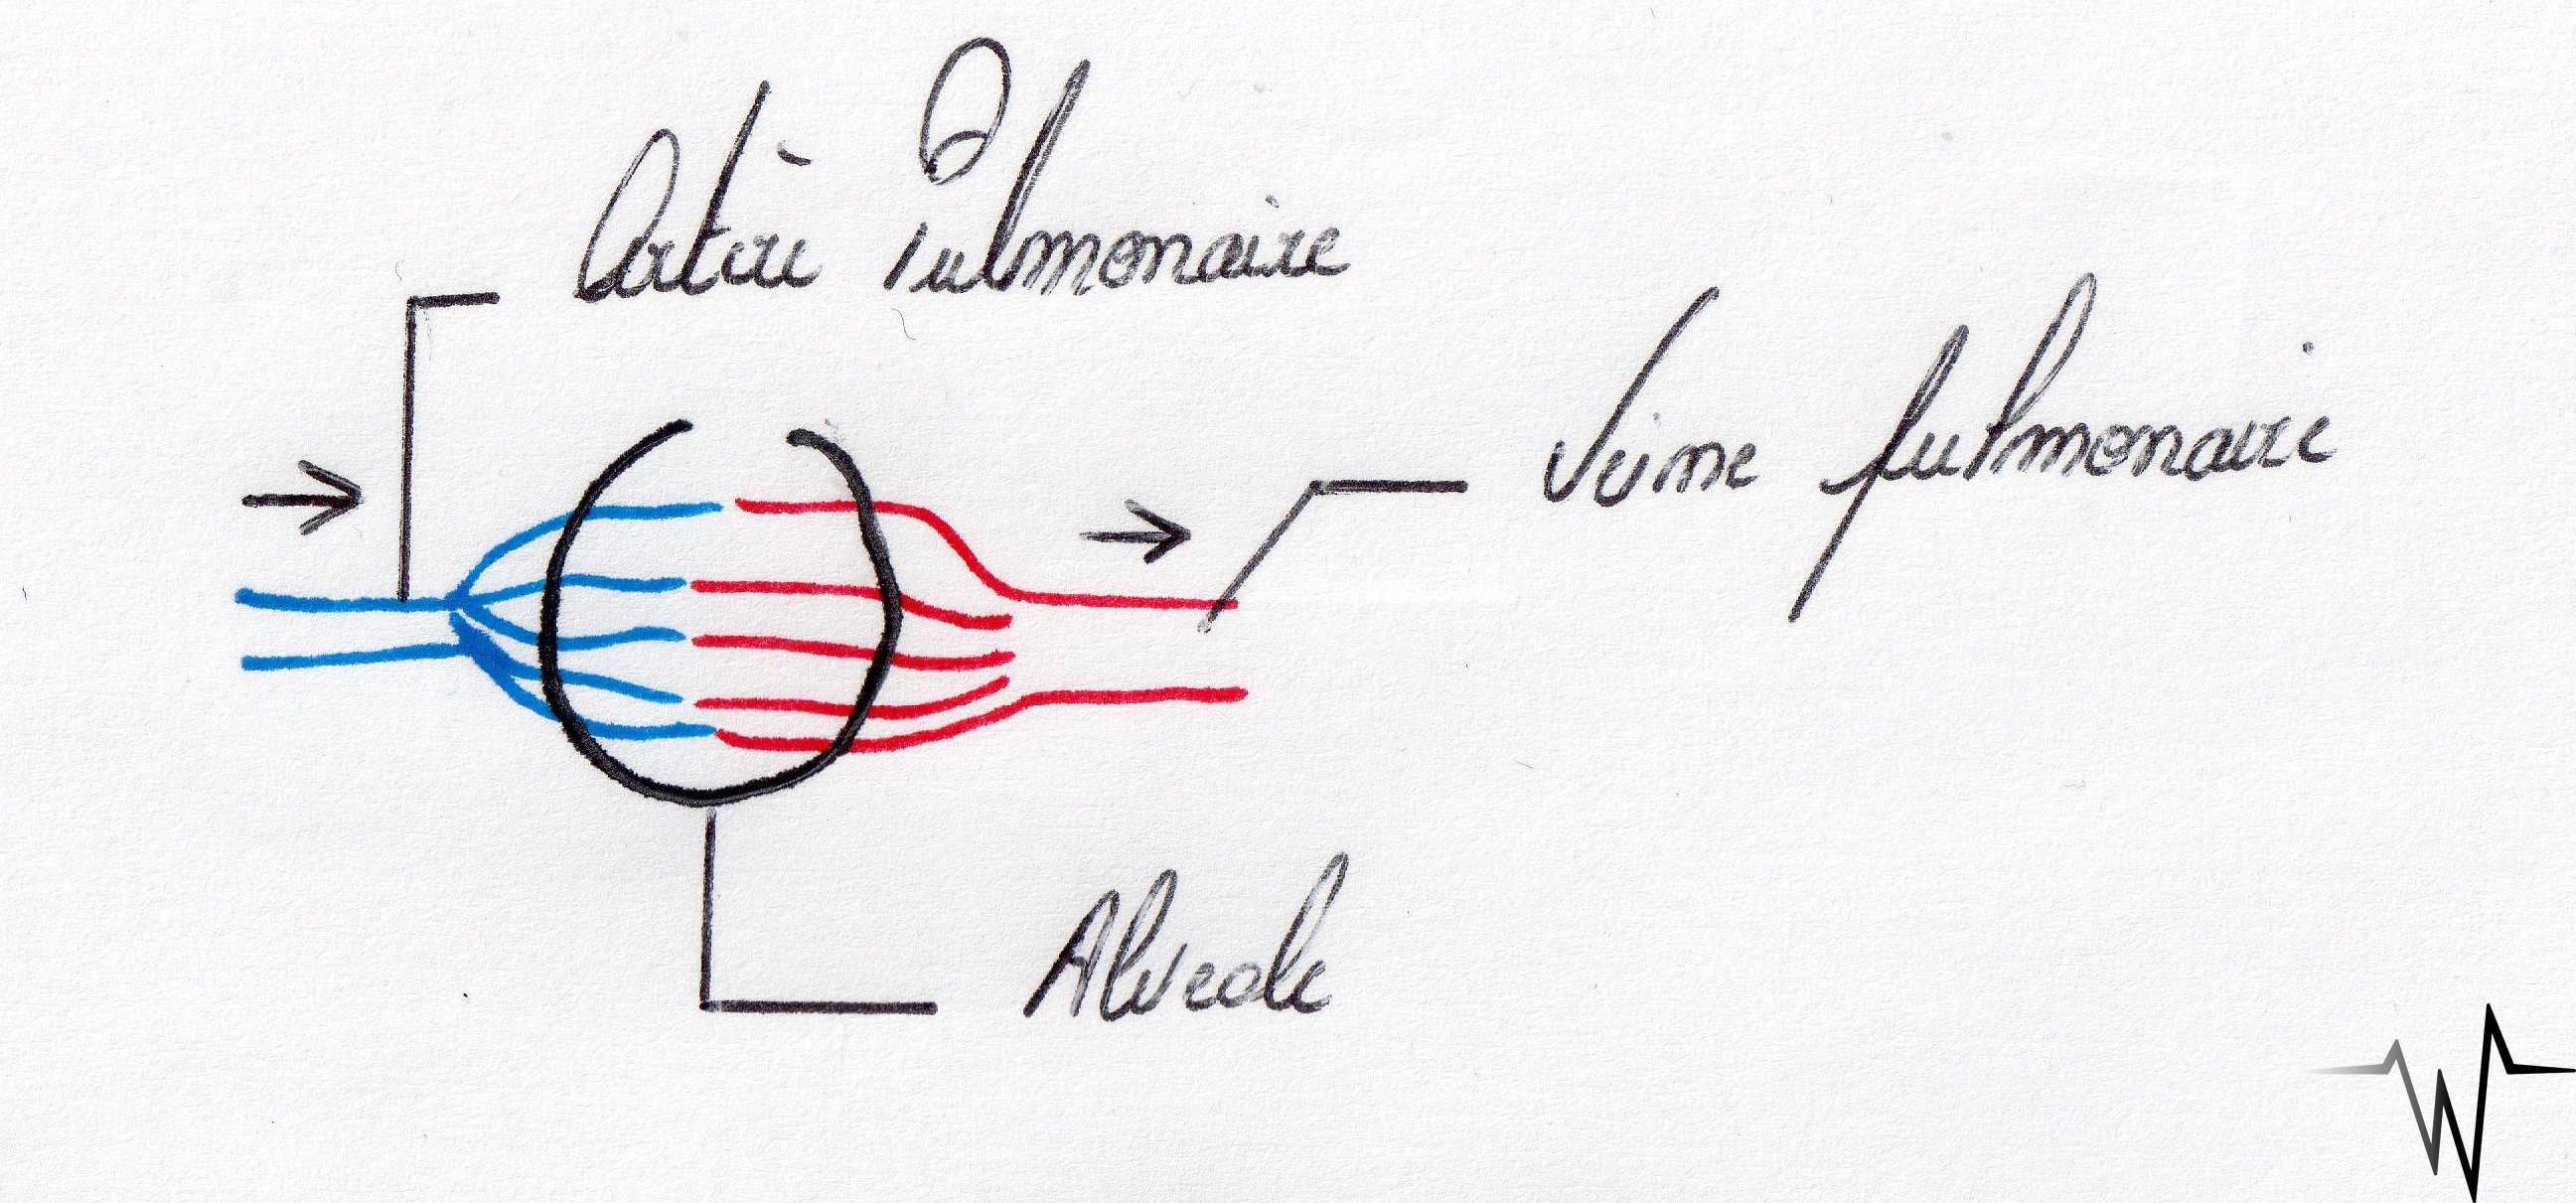 Artère Pulmonaire
Veine pulmonaire
Alveole